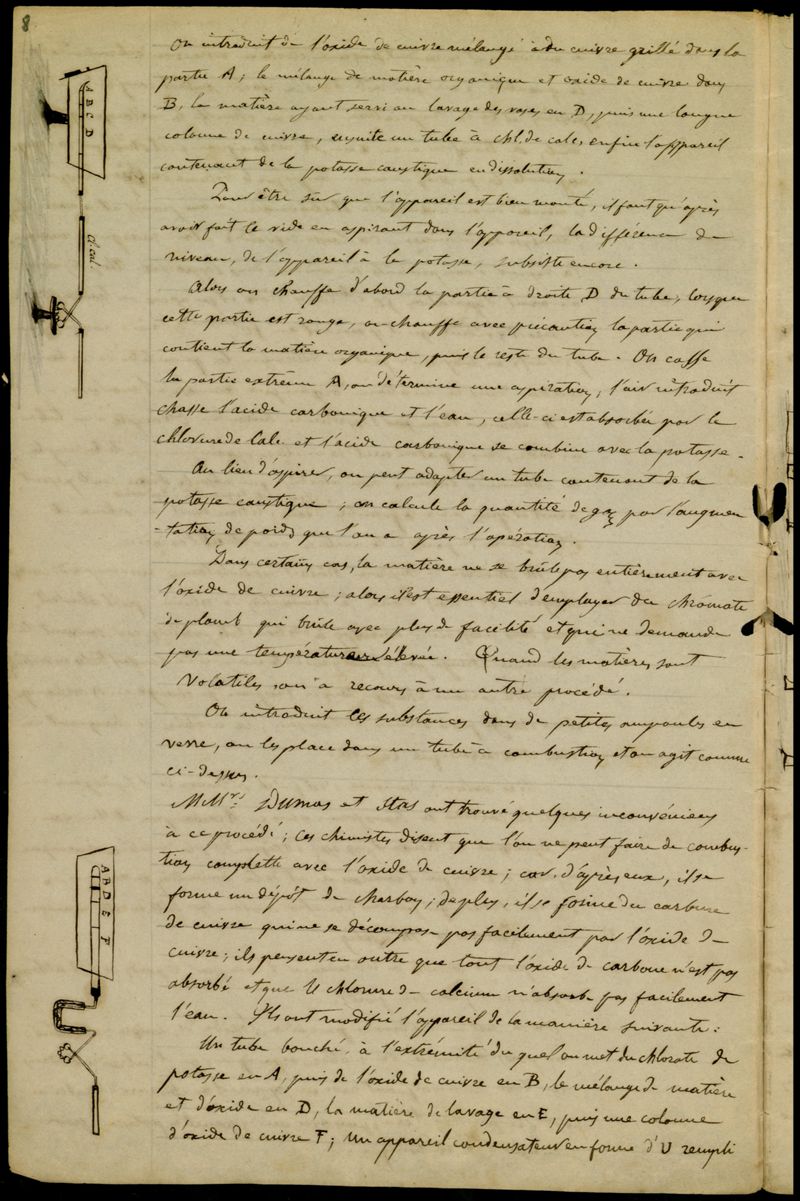 8
On introduit de l'oxide de cuivre mélangé à du cuivre grillé dans la
partie A; le mélange de matière organique et oxide de cuivre dans
B, la matière ayant servi au lavage des vases en D, puis une longue
colonne de cuivre, ensuite un tube à chl. de calc. enfin l'appareil
contenant de la potasse caustique en dissolution.
Pour être sûr que l'appareil est bien monté, il faut qu'après
avoir fait le vide en aspirant dans l'appareil, la différence de
niveau, de l'appareil à la potasse, subsiste encore.
Alors on chauffe d'abord la partie à droite D du tube, lorsque
cette partie est rouge, on chauffe avec précaution la partie qui
contient la matière organique, puis le reste du tube. On casse
la partie extrême A, on détermine une aspiration, l'air introduit
chasse l'acide carbonique et l'eau, celle-ci est absorbée par le
chlorure de Calc. et l'acide carbonique se combine avec la potasse.
Au lieu d'aspirer, on peut adapter un tube contenant de la
potasse caustique; on calcule la quantité de gaz par l'augmen
-tation de poids que l'on a après l'opération.
Dans certains cas, la matière ne se brûle pas entièrement avec
l'oxide de cuivre; alors il est essentiel d'employer du chromate
de plomb qui brûle avec plus de facilité et qui ne demande
pas une température élevée. Quand les matières sont
Volatiles on a recours à un autre procédé.
On introduit les substances dans de petites ampoules en
verre, on les place dans un tube à combustion et on agit comme
ci-dessus.
MMrs Dumas et Stas ont trouvé quelques inconvéniens
à ce procédé; ces chimistes disent que l'on ne peut faire de combus-
tion complette avec l'oxide de cuivre; car, d'après eux, il se
forme un dépôt de charbon; de plus, il se forme du carbure
de cuivre qui ne se décompose pas facilement par l'oxide de
cuivre; ils pensent en outre que tout l'oxide de carbone n'est pas
absorbé et que le chlorure de calcium n'absorbe pas facilement
l'eau. Ils ont modifié l'appareil de la manière suivante:
Un tube bouché, à l'extrémité du quel on met du chlorate de
potasse en A, puis de l'oxide de cuivre en B, le mélange de matière
et d'oxide en D, la matière de lavage en E, puis une colonne
d'oxide de cuivre F; un appareil condensateur en forme d'U rempli
A B C D
cl. cal.
A B D E F